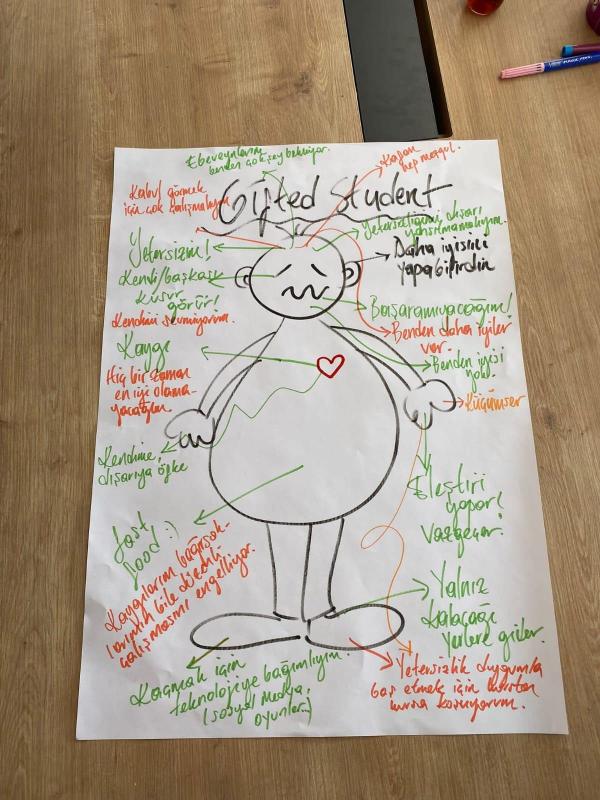 Ebeveynlerim
benden çok şey bekliyor.
Kafam
hep meşgul.
Gifted Student
Kabul görmek
için çok çalışmalıyım
Yetersizliğimi dışarı
yansıtmamalıyım.
Yetersizim!
Daha iyisini
yapabilirdin
Kendi/başkası
kusur
görür!
Kendimi sevmiyorum.
Başaramıyacağım!
Benden daha iyiler
var.
Kaygı
Benden iyisi
yok.
Hiç bir zaman
en iyi olama-
yacağım
Küçümser
Kendime,
dışarıya öfke
Eleştiri
yapar!
Vazgeçer.
Fast
Food :)
Kaygılarım bağırsak-
larımın bile düzenli
çalışmasını engelliyor.
Yalnız
kalacağı
yerlere gider.
Kaçmak için
teknolojiye bağımlıyım.
(sosyal medya,
oyunlar.)
Yetersizlik duygumla
baş etmek için kurstan
kursa koşuyorum.